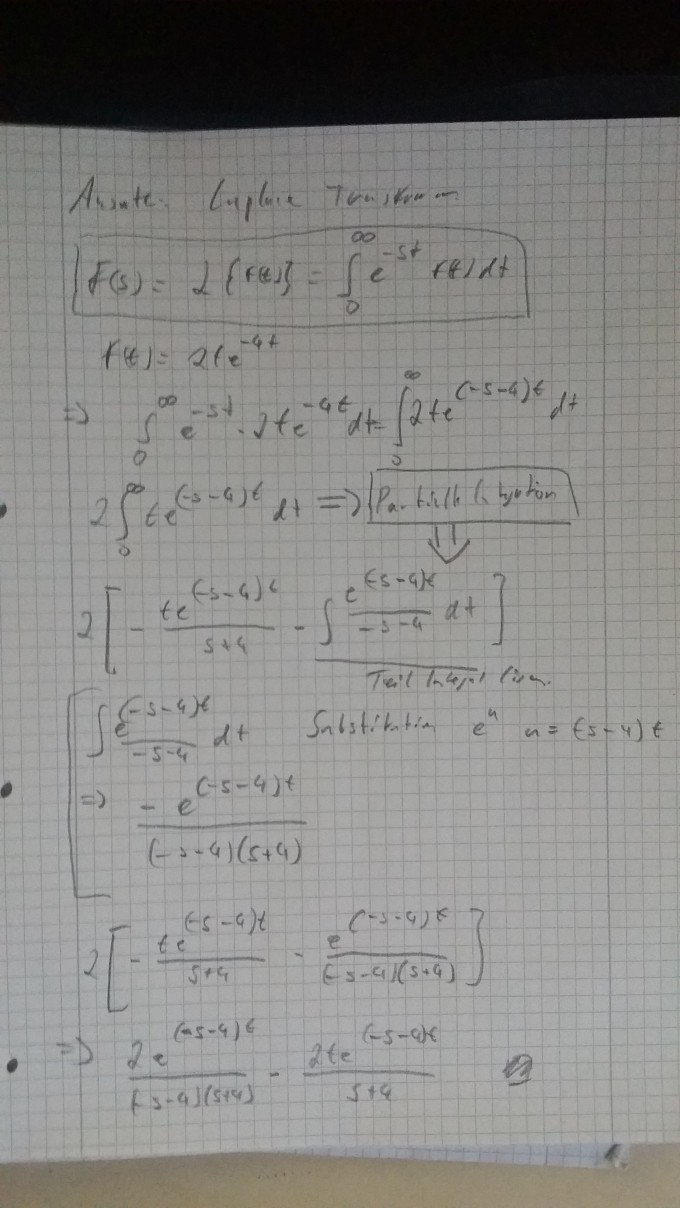 Ansatz: Laplace Transform
F(s) = L{f(t)} = ∫₀^∞ e^(-st) f(t) dt
f(t) = 2te^(-4t)
=> ∫₀^∞ e^(-st) · 2te^(-4t) dt = ∫₀^∞ 2te^((-s-4)t) dt
2 ∫₀^∞ te^((-s-4)t) dt => Partielle Integration
⇓
2 [ - te^((-s-4)t) / (s+4) - ∫ e^((-s-4)t) / (-s-4) dt ]
Teil Integral lösen
∫ e^((-s-4)t) / (-s-4) dt Substitution e^u u = (-s-4)t
=> - e^((-s-4)t) / ((-s-4)(s+4))
2 [ - te^((-s-4)t) / (s+4) - e^((-s-4)t) / ((-s-4)(s+4)) ]
=> 2e^((-s-4)t) / ((-s-4)(s+4)) - 2te^((-s-4)t) / (s+4)